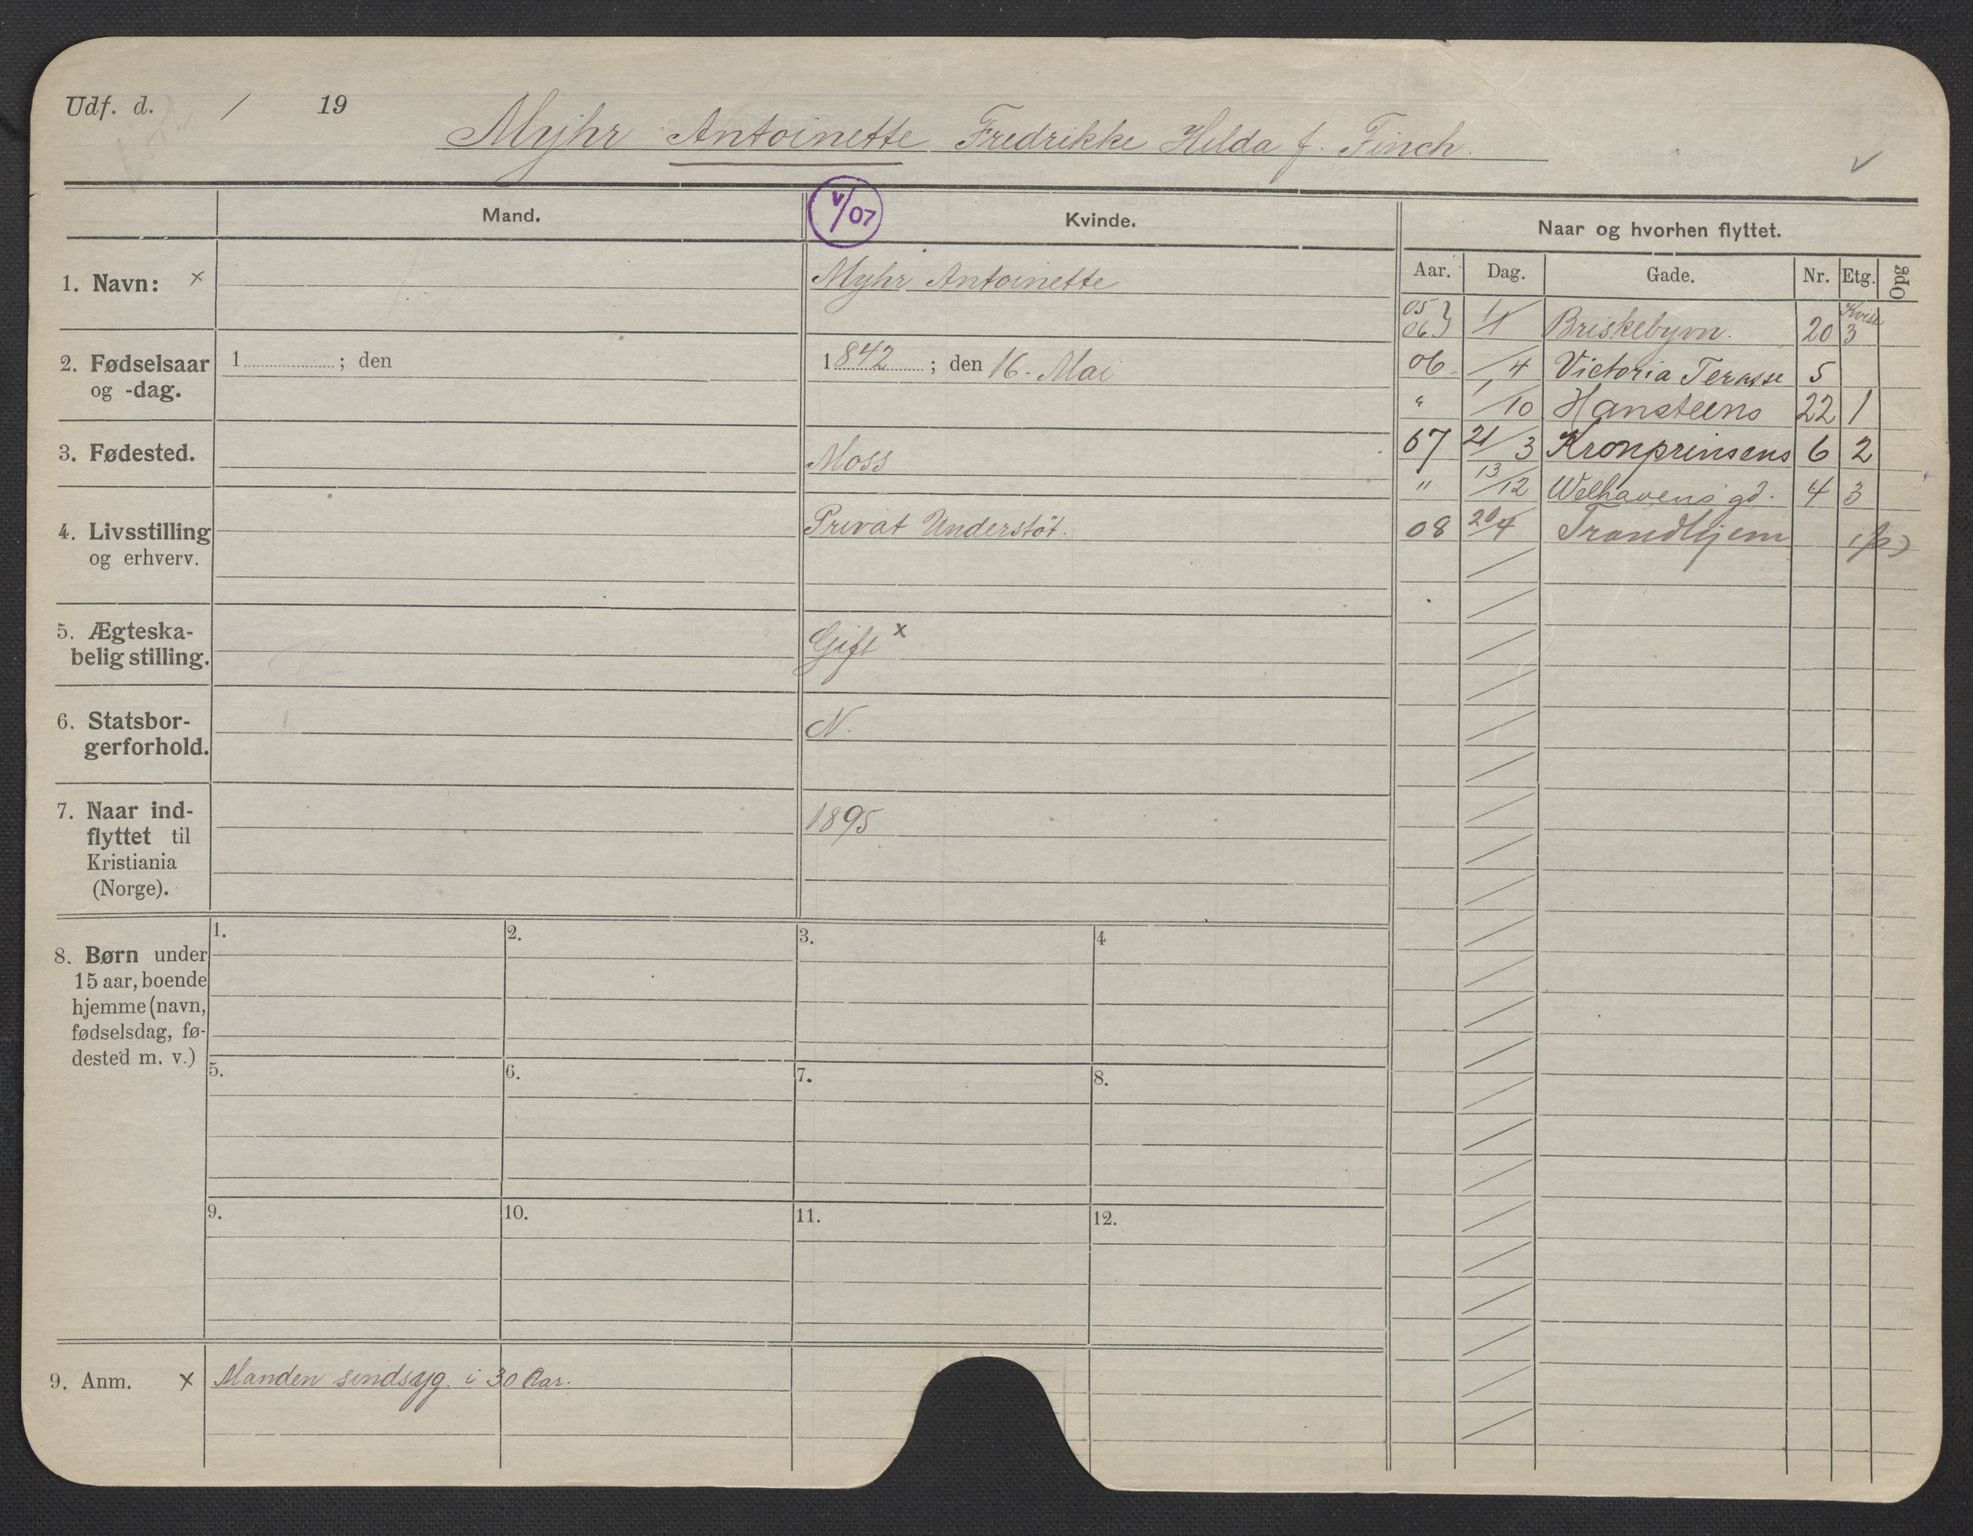 Udf. d. / 19
Myhr Antoinette Fredrikke Hilda f. Finch.
Mand.
V/07
Kvinde.
Naar og hvorhen flyttet.
Aar. Dag. Gade. Nr. Etg. Opg
1. Navn: x
Myhr Antoinette
2. Fødselsaar og -dag.
1 ; den
1842 ; den 16. Mai
3. Fødested.
Moss
4. Livsstilling og erhverv.
Privat Understöt.
5. Ægteskabelig stilling.
Gift x
6. Statsborgerforhold.
N.
7. Naar indflyttet til Kristiania (Norge).
1895
05 06} 1/1 Briskebyvn. 20 3 Kvist
06 /4 Victoria Terasse 5
" 1/10 Hansteens 22 1
07 21/3 Kronprinsens 6 2
" 13/12 Welhavens gd. 4 3
08 20/4 Trondhjem
8. Børn under
15 aar, boende
hjemme (navn,
fødselsdag, fø-
dested m. v.)
1. 2. 3. 4
5. 6. 7. 8.
9. 10. 11. 12.
9. Anm. x Manden sindsyg. i 30 Aar.